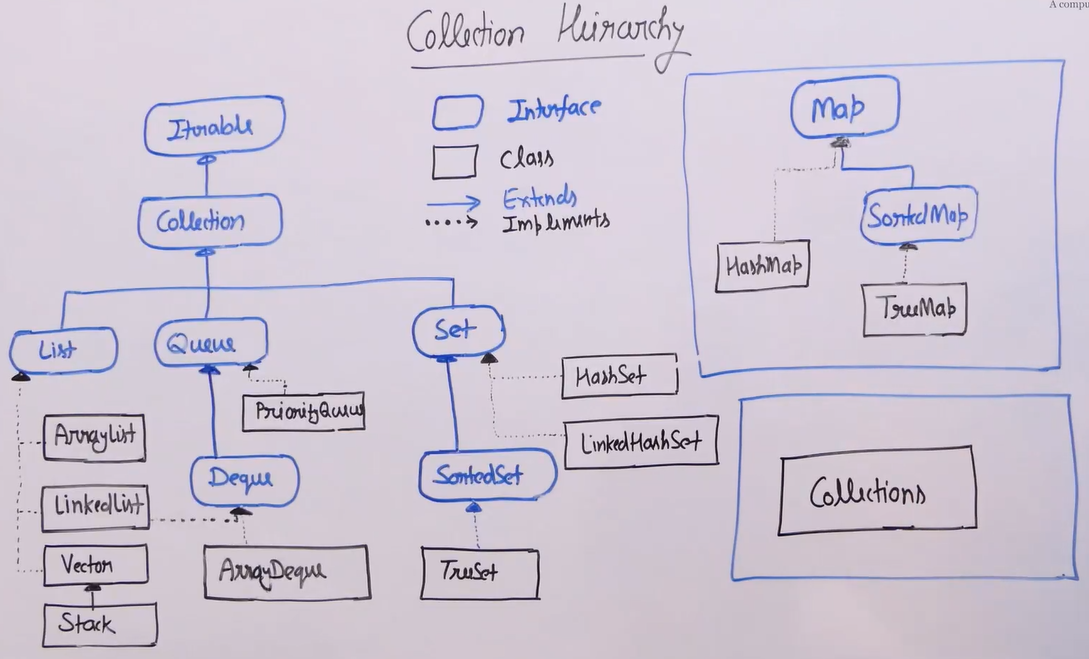 A compu
Collection Heirarchy
Interface
Class
Extends
Implements
Iterable
Collection
List
Queue
Set
PriorityQueue
ArrayList
LinkedList
Vector
Stack
Deque
ArrayDeque
SortedSet
TreeSet
HashSet
LinkedHashSet
Map
SortedMap
HashMap
TreeMap
Collections